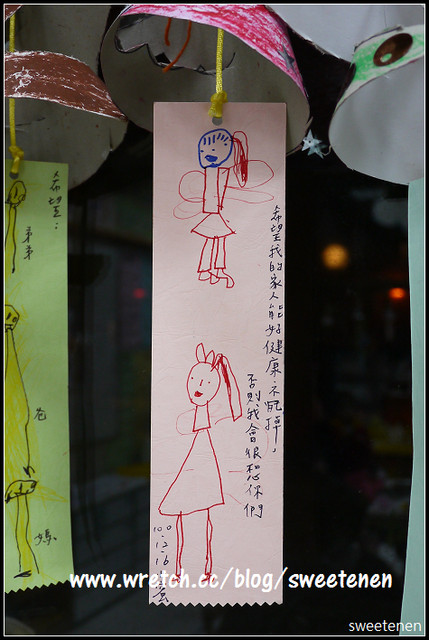 希望:
弟弟
爸
媽
希望我的家人能好健康.不死掉,
否則我會很想你們
100.12.16
www.wretch.cc/blog/sweetenen
sweetenen